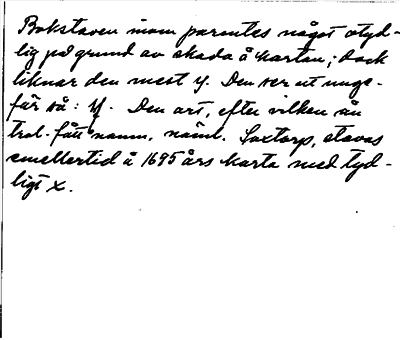 Bokstaven inom parentes något otyd-
lig på grund av skada å kartan; dock
liknar den mest y. Den ser ut unge-
fär så: y. Den ort, efter vilken ån
trol. fått namn, näml. Saxtorp, stavas
emellertid å 1695 års karta med tyd-
ligt x.